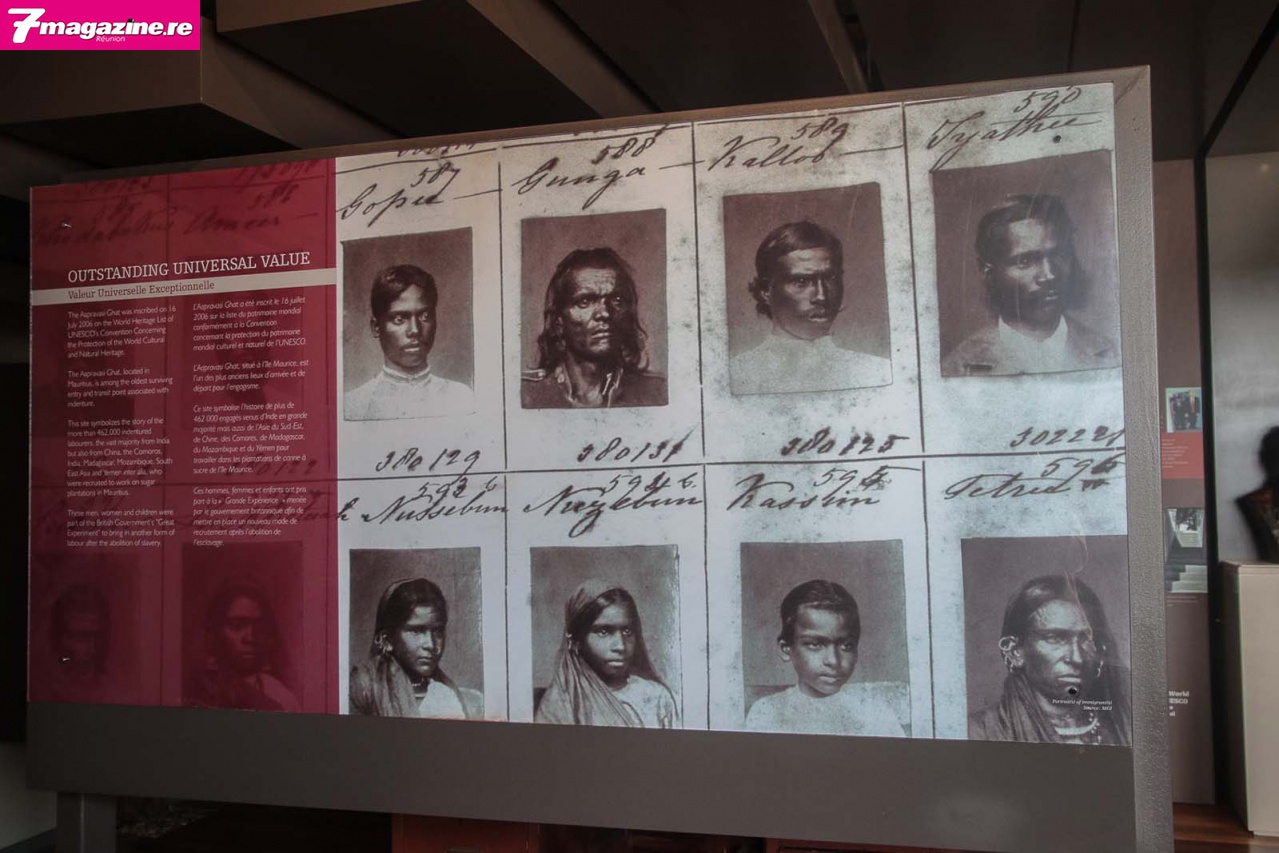 7magazine.re
Réunion
OUTSTANDING UNIVERSAL VALUE
Valeur Universelle Exceptionnelle
The Aapravasi Ghat was inscribed on 16
July 2006 on the World Heritage List of
UNESCO's Convention Concerning
the Protection of the World Cultural
and Natural Heritage.
The Aapravasi Ghat, located in
Mauritius, is among the oldest surviving
entry and transit point associated with
indenture.
This site symbolizes the story of the
more than 462,000 indentured
labourers, the vast majority from India
but also from China, the Comoros,
India, Madagascar, Mozambique, South
East Asia and Yemen inter alia, who
were recruited to work on sugar
plantations in Mauritius.
These men, women and children were
part of the British Government's "Great
Experiment" to bring in another form of
labour after the abolition of slavery.
L'Aapravasi Ghat a été inscrit le 16 juillet
2006 sur la liste du patrimoine mondial
conformément à la Convention
concernant la protection du patrimoine
mondial culturel et naturel de l'UNESCO.
L'Aapravasi Ghat, situé à l'île Maurice, est
l'un des plus anciens lieux d'arrivée et de
départ pour l'engagisme.
Ce site symbolise l'histoire de plus de
462 000 engagés venus d'Inde en grande
majorité mais aussi de l'Asie du Sud-Est,
de Chine, des Comores, de Madagascar,
du Mozambique et du Yémen pour
travailler dans les plantations de canne à
sucre de l'île Maurice.
Ces hommes, femmes et enfants ont pris
part à la « Grande Expérience » menée
par le gouvernement britannique afin de
mettre en place un nouveau mode de
recrutement après l'abolition de
l'esclavage.
587
588
589
590
Gunga
380129
380131
380125
Nussebun
Kassim
World